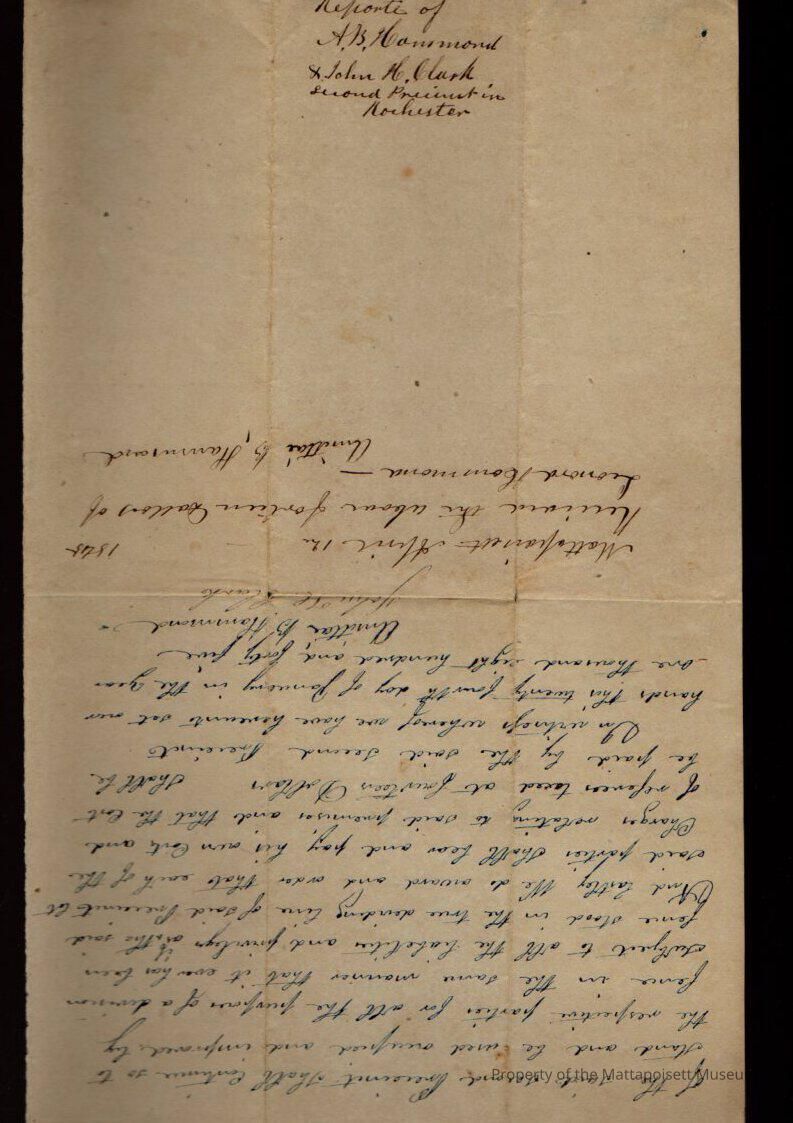 Reporte of
A. B. Hammond
& John H. Clark
Second Precinct in
Rochester
of the said Second Precinct shall continue so to
stand and be used occupied and improved by
the respective parties for all the purposes of a division
fence in the same manner that it ever has been
subject to all the liabilities and privileges as tho said
fence stood in the true deviding line of said Precincts lot
And lastly We do award and order that each of the
said parties shall bear and pay his own Cost, and
Charges relating to said premises and that the Cost
of referees taxed at fourteen Dollars shall be
be paid by the said Second Precinct
In witness whereof we have hereunto set our
hands this twenty fourth day of January in the year
one thousand eight hundred and forty five
Amittai B. Hammond
John H. Clark
Mattapoisett April 12 1845
Received the above forteen Dollars of
Leonard Hammond
Amittai B. Hammond
Property of the Mattapoisett Museum